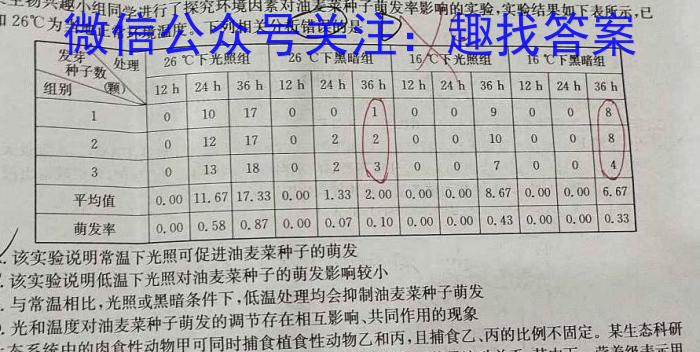 生物兴趣小组同学进行了探究环境因素对油麦菜种子萌发率影响的实验,实验结果如下表所示,已
和 26℃为 下列相关分析错误的是
微信公众号关注：趣找答案
发芽种子数(颗) 处理 组别 26 ℃下光照组 26 ℃下黑暗组 16 ℃下光照组 16 ℃下黑暗组
12 h 24 h 36 h 12 h 24 h 36 h 12 h 24 h 36 h 12 h 24 h 36 h
1 0 10 17 0 0 1 0 0 9 0 0 8
2 0 12 17 0 2 2 0 0 10 0 0 8
3 0 13 18 0 2 3 0 0 7 0 0 4
平均值 0.00 11.67 17.33 0.00 1.33 2.00 0.00 0.00 8.67 0.00 0.00 6.67
萌发率 0.00 0.58 0.87 0.00 0.07 0.10 0.00 0.00 0.43 0.00 0.00 0.33
. 该实验说明常温下光照可促进油麦菜种子的萌发
. 该实验说明低温下光照对油麦菜种子的萌发影响较小
. 与常温相比,光照或黑暗条件下,低温处理均会抑制油麦菜种子萌发
. 光和温度对油麦菜种子萌发的调节存在相互影响、共同作用的现象
态系统中的肉食性动物甲可同时捕食植食性动物乙和丙,且捕食乙、丙的比例不固定。某生态科研